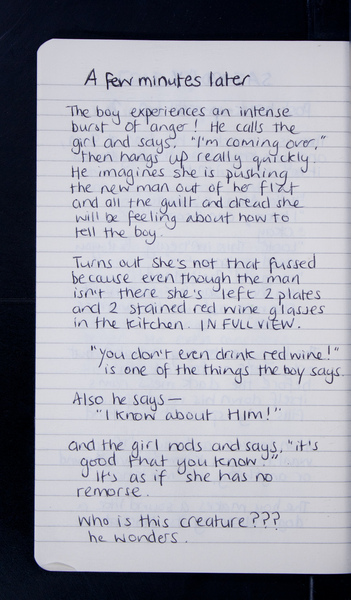 A few minutes later
The boy experiences an intense
burst of anger! He calls the
girl and says, "I'm coming over,"
then hangs up really quickly.
He imagines she is pushing
the new man out of her flat
and all the guilt and dread she
will be feeling about how to
tell the boy.
Turns out she's not that fussed
because even though the man
isn't there she's left 2 plates
and 2 stained red wine glasses
in the kitchen. IN FULL VIEW.
"you don't even drink red wine!"
is one of the things the boy says.
Also he says—
"I know about HIM!"
and the girl nods and says, "it's
good that you know."
It's as if she has no
remorse.
Who is this creature???
he wonders.